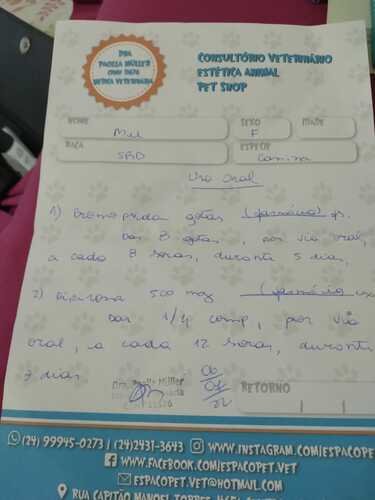 DRA
PAOLLA MÜLLER
MÉDICA VETERINÁRIA
CONSULTÓRIO VETERINÁRIO
ESTÉTICA ANIMAL
PET SHOP
NOME
Mel
SEXO
F
IDADE
RAÇA
SRD
ESPÉCIE
Canina
Uso oral
1) Bromoprida gotas (farmácia)
Dar 8 gotas, por via oral,
a cada 8 horas, durante 5 dias,
2) Dipirona 500 mg (farmácia
Dar 1/4 comp, por via
oral, a cada 12 horas, durante
dias
Dra. Paolla Müller
RETORNO
(24) 99945-0273 | (24)2431-3643 WWW.INSTAGRAM.COM|ESPACOPE
WWW.FACEBOOK.COM|ESPACOPET.VET
ESPACOPET.VET@HOTMAIL.COM
RUA CAPITÃO MANOEL TORRES